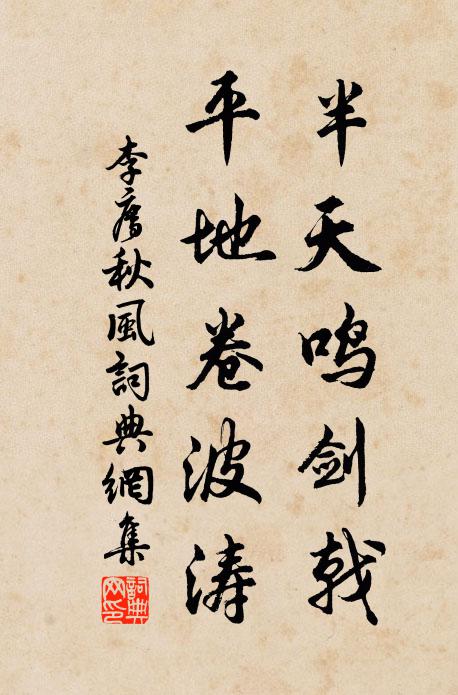 半天鸣剑戟
平地卷波涛
李秋風詞典網集
詞典网印